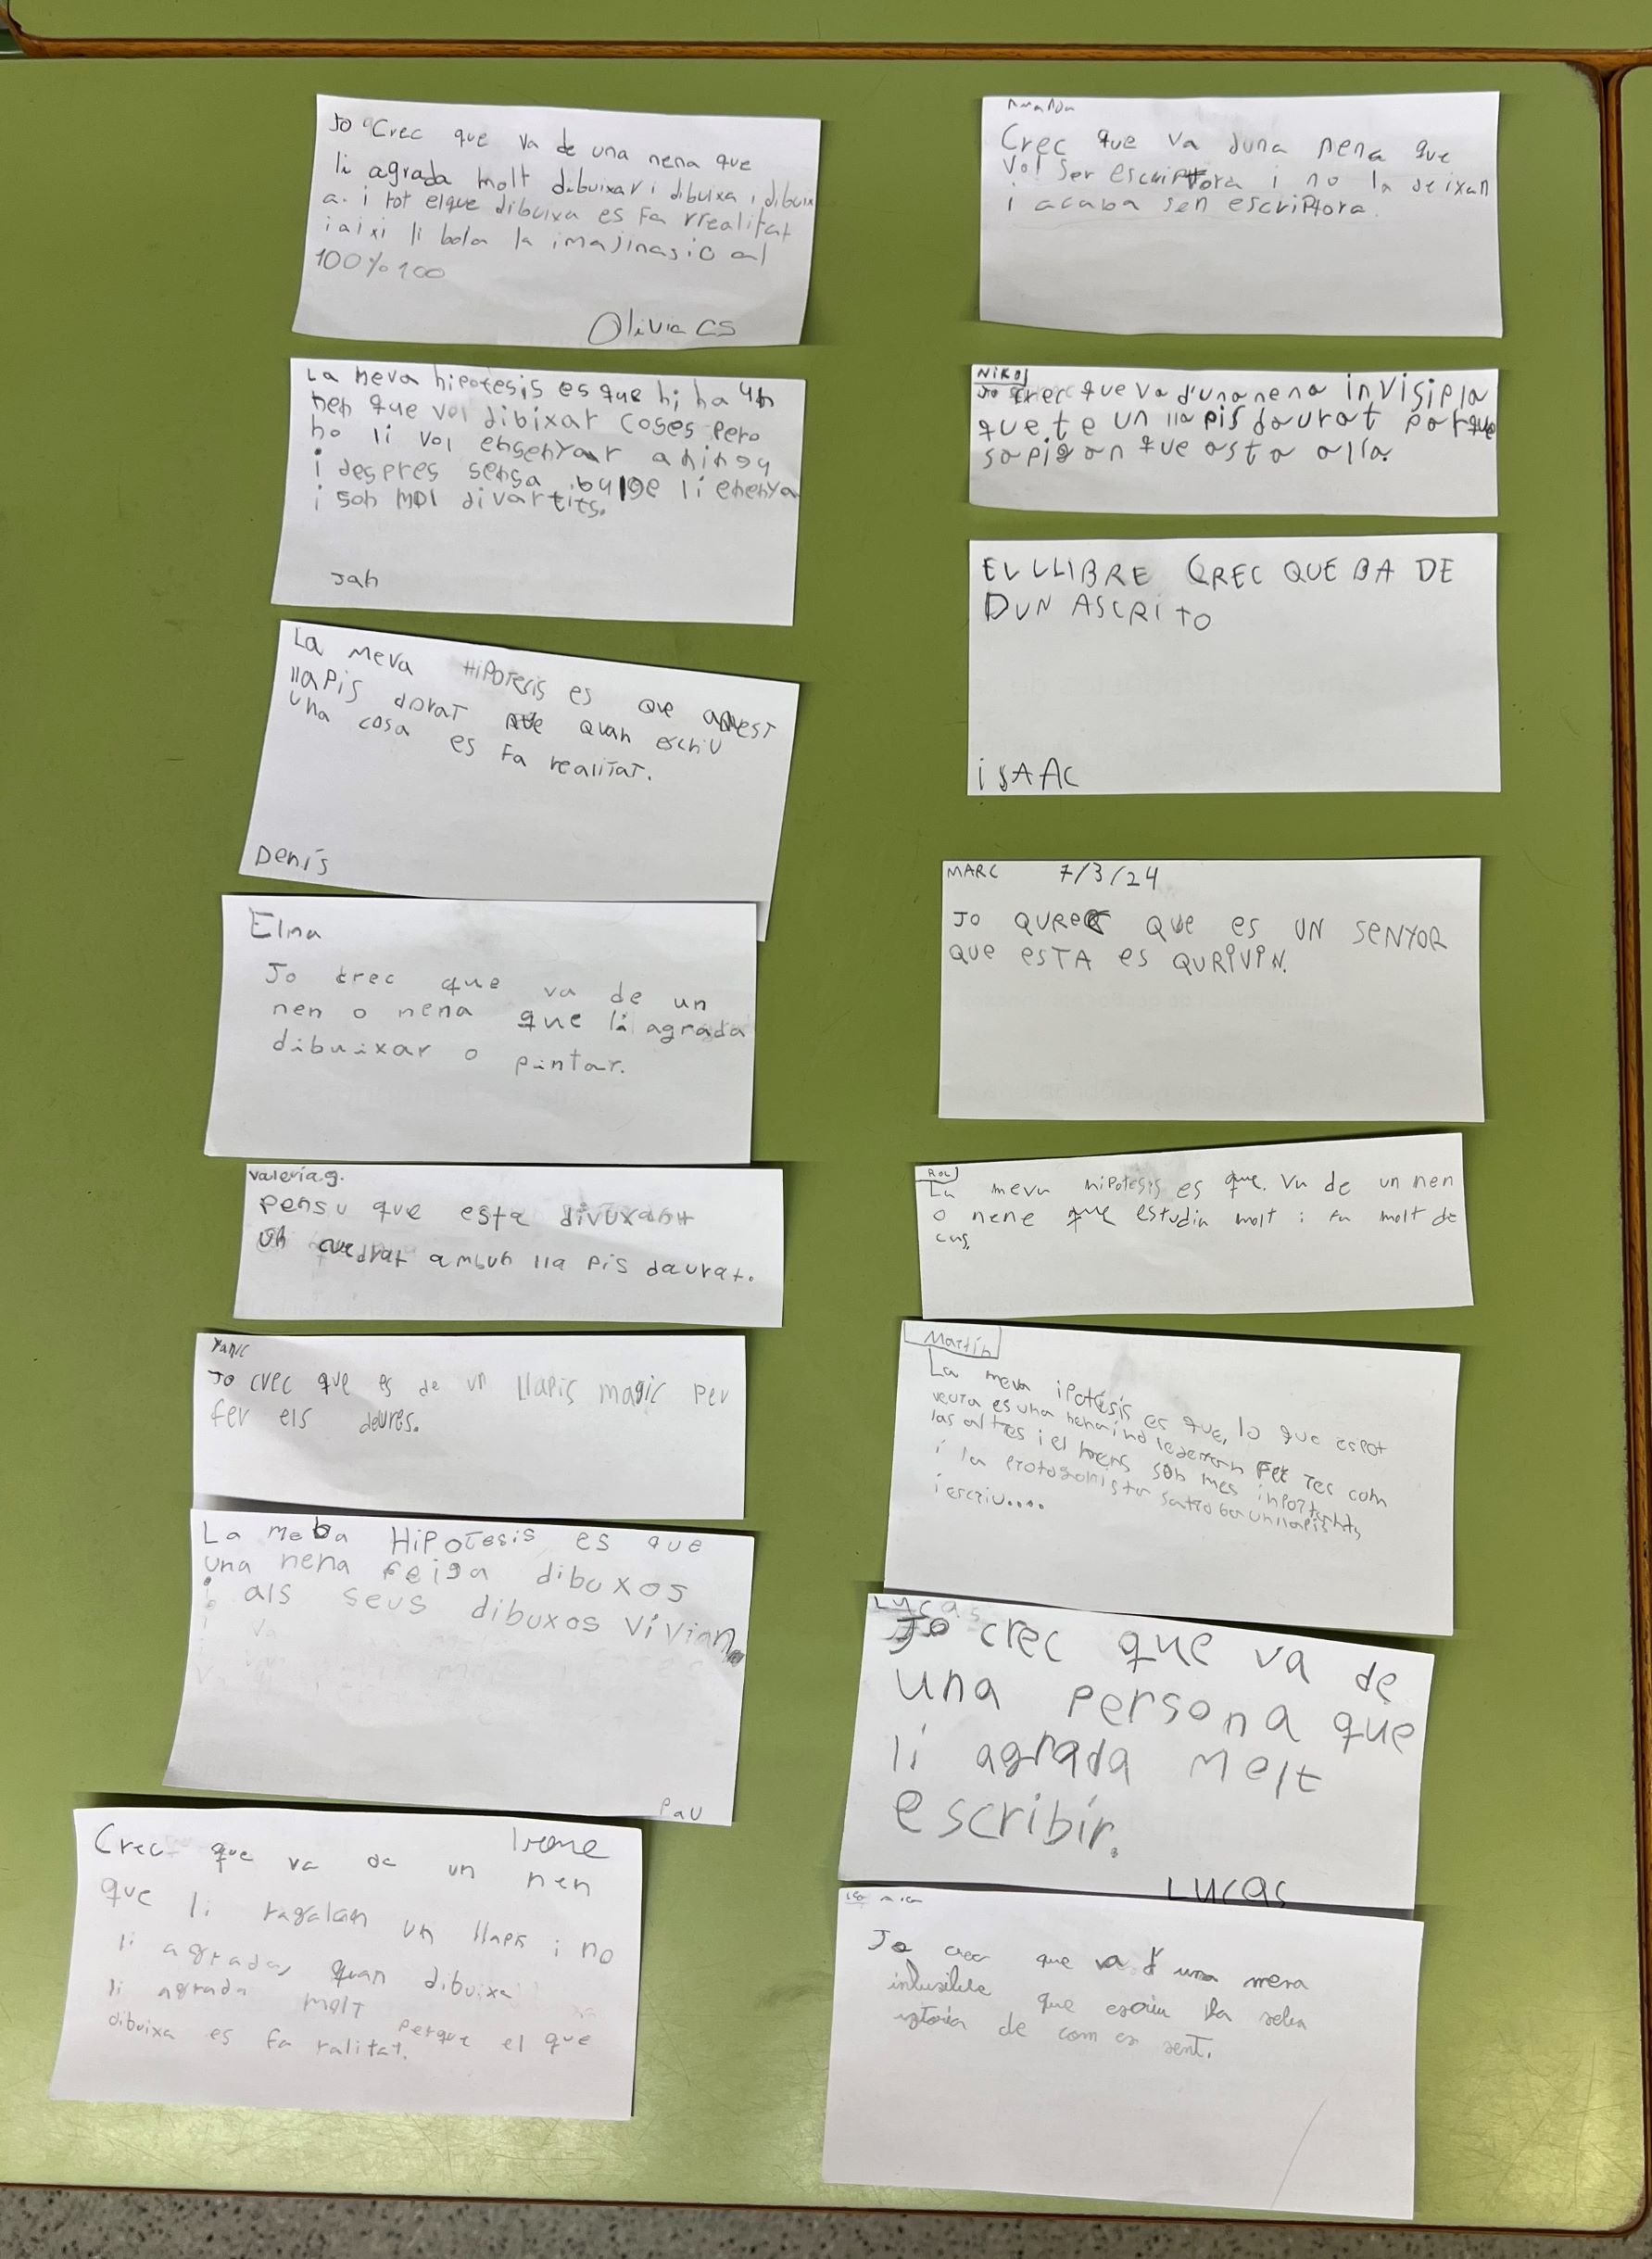 Jo Crec que va de una nena que
li agrada molt dibuixar i dibuixa i dibuix
a. i tot elque dibuixa es Fa rrealitat
iaixi li bola la imajinasio al
100%100
Olivia CS
La meva hipotesis es que hi ha un
nen que vol dibixar coses pero
no li vol ensenyar a ningu
i despres sensa bulge li enenya
i son mol divartits.
Jan
La meva HiPOTesis es que aquest
llapis dorat quan escriu
una cosa es Fa realitat.
Denís
Elna
Jo crec que va de un
nen o nena que li agrada
dibuixar o pintar.
valeria g.
pensu que esta divuxant
un cuedrat ambun lla pis daurat.
Yanic
Jo crec que es de un llapis magic per
fer els deures.
La meba HiPOTesis es que
una nena feiga dibuxos
i als seus dibuxos vivian
Pau
Irene
Crec que va de un nen
que li ragalan un llapis i no
li agrada, quan dibuixa
li agrada molt perque el que
dibuixa es fa ralitat.
Crec que va duna nena que
vol ser escriptora i no la deixan
i acaba sen escriptora.
NiKOl
Jo crec que va d'una nena invisipla
que te un lla pis daurat porque
sapigan que asta alla.
EL LLIBRE QREC QUE BA DE
DUN ASCRITO
iSAAC
MARC 7/3/24
JO QUREC QUE es UN SENYOR
QUE ESTA es QURIVIN.
ROC
La meva hipotesis es que. Va de un nen
o nene que estudia molt i fa molt de
cas.
Martín
La meva ipotésis es que, lo que espot
veura es una nena Fet res com
las altres i el nens són mes inportants,
i la protagonista satroba un llapis
i escriu....
Lucas
Jo crec que va de
una persona que
li agrada molt
escribir.
LUCAS
Jo crec que va d una nena
inbisible que escriu la seba
istoria de com es sent.